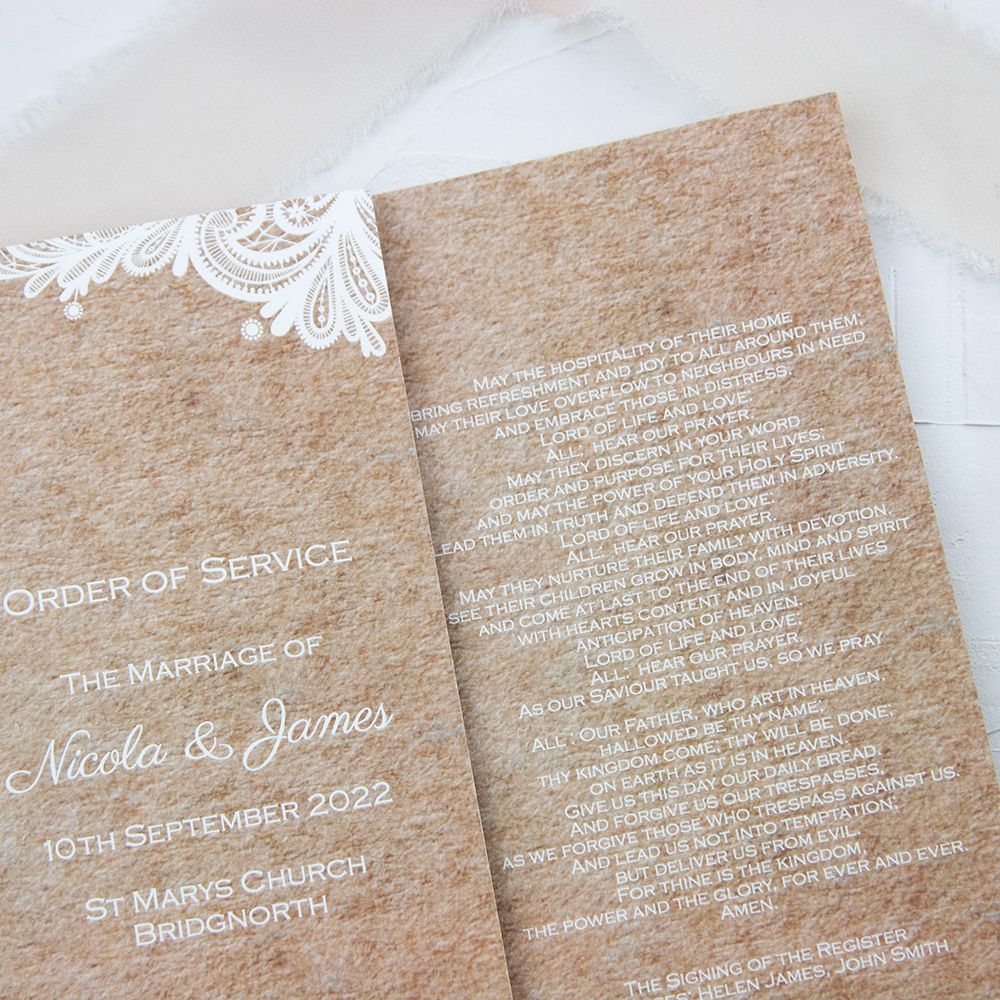 ORDER OF SERVICE
THE MARRIAGE OF
Nicola & James
10TH SEPTEMBER 2022
ST MARYS CHURCH
BRIDGNORTH
MAY THE HOSPITALITY OF THEIR HOME
BRING REFRESHMENT AND JOY TO ALL AROUND THEM;
MAY THEIR LOVE OVERFLOW TO NEIGHBOURS IN NEED
AND EMBRACE THOSE IN DISTRESS:
LORD OF LIFE AND LOVE:
ALL: HEAR OUR PRAYER.
MAY THEY DISCERN IN YOUR WORD
ORDER AND PURPOSE FOR THEIR LIVES;
AND MAY THE POWER OF YOUR HOLY SPIRIT
LEAD THEM IN TRUTH AND DEFEND THEM IN ADVERSITY.
LORD OF LIFE AND LOVE:
ALL: HEAR OUR PRAYER.
MAY THEY NURTURE THEIR FAMILY WITH DEVOTION,
SEE THEIR CHILDREN GROW IN BODY, MIND AND SPIRIT
AND COME AT LAST TO THE END OF THEIR LIVES
WITH HEARTS CONTENT AND IN JOYFUL
ANTICIPATION OF HEAVEN.
LORD OF LIFE AND LOVE:
ALL: HEAR OUR PRAYER.
AS OUR SAVIOUR TAUGHT US, SO WE PRAY
ALL : OUR FATHER, WHO ART IN HEAVEN,
HALLOWED BE THY NAME;
THY KINGDOM COME; THY WILL BE DONE;
ON EARTH AS IT IS IN HEAVEN.
GIVE US THIS DAY OUR DAILY BREAD.
AND FORGIVE US OUR TRESPASSES,
AS WE FORGIVE THOSE WHO TRESPASS AGAINST US.
AND LEAD US NOT INTO TEMPTATION;
BUT DELIVER US FROM EVIL.
FOR THINE IS THE KINGDOM,
THE POWER AND THE GLORY, FOR EVER AND EVER.
AMEN.
THE SIGNING OF THE REGISTER
HELEN JAMES, JOHN SMITH